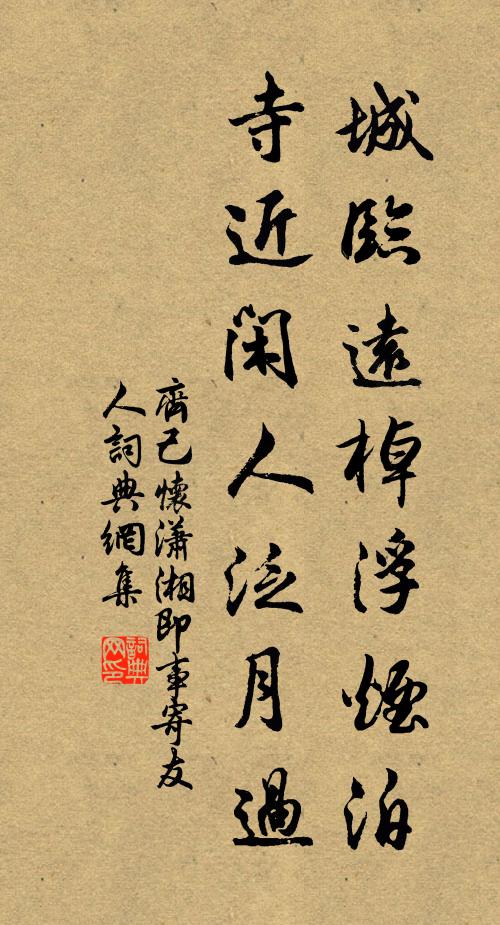 城臨遠棹浮煙泊
寺近閑人泛月過
齊己懷瀟湘即事寄友
人詞典網集
詞典网印